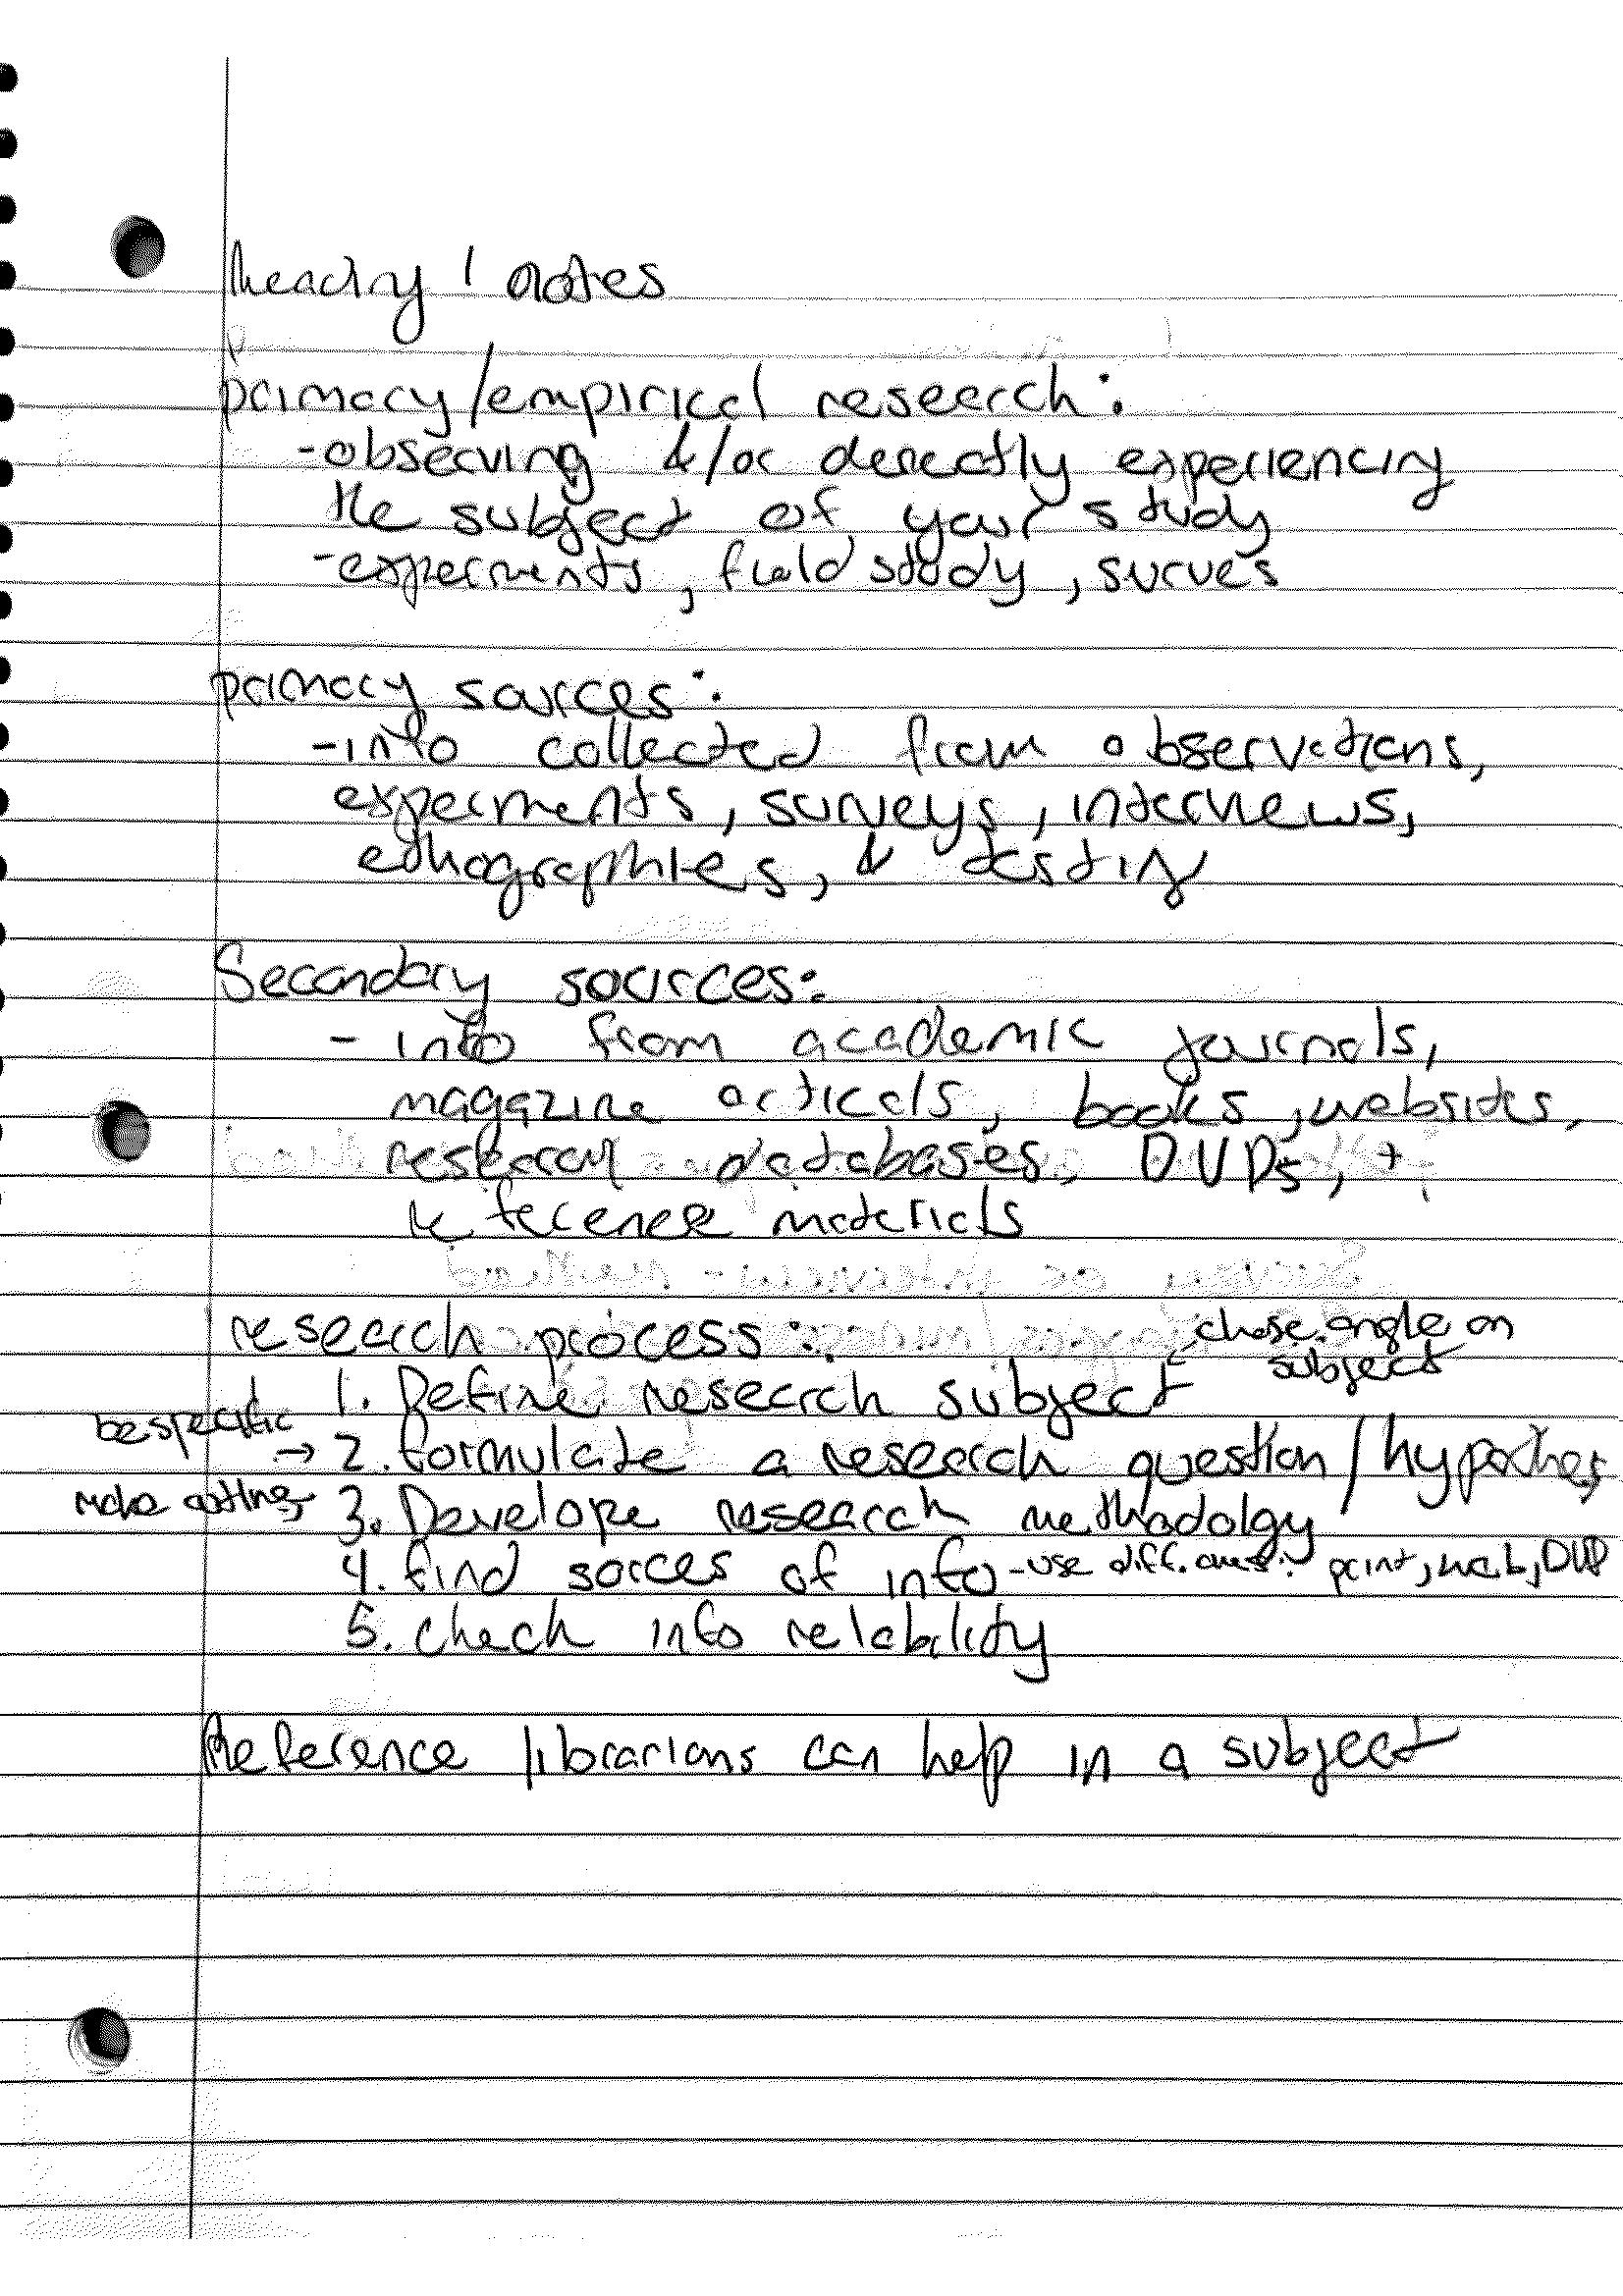 reading 1 notes
primary/empirical research:
-observing &/or derectly experiencing
the subject of your study
-experments, field study, surves
primary sources:
-info collected from observations,
experments, surveys, interviews,
ethographies, & testing
Secondary sources:
- info from academic journals,
magazine articals, books, websites,
research databases, DVDs, +
reference materials
research process:
chose angle on
subject
1. Define research subject
be specific
→ 2. formulate a research question/hypothes
make outline → 3. Develope research methadolgy
4. find sorces of info - use diff. : print, web, DVD
5. check info relability
Reference librarians can help in a subject